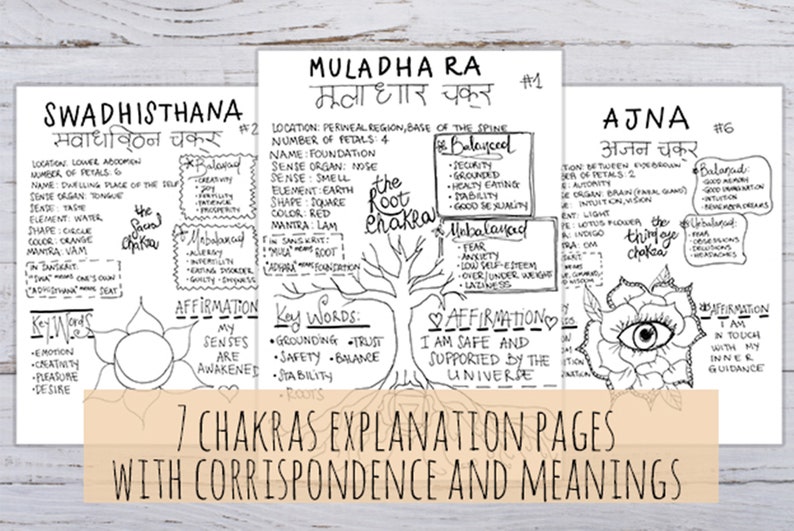 SWADHISTHANA
चकर
#2
LOCATION: LOWER ABDOMEN
NUMBER OF PETALS: 6
NAME: DWELLING PLACE OF THE SELF
SENSE ORGAN: TONGUE
SENSE: TASTE
ELEMENT: WATER
SHAPE: CIRCLE
COLOR: ORANGE
MANTRA: VAM
IN SANSKRIT:
"SWA" MEANS ONE'S OWN
"ADHISTHANA" MEANS SEAT
the
Sacral
chakra
Balanced
• CREATIVITY
• JOY
• FERTILITY
• PATIENCE
• PROSPERITY
Unbalanced
• ALLERGY
• INFERTILITY
• EATING DISORDER
• GUILTY
Key Words
• EMOTION
• CREATIVITY
• PLEASURE
• DESIRE
AFFIRMATION
MY
SENSES
ARE
AWAKENED
MULADHARA
मूलाधार चकर
#1
LOCATION: PERINEAL REGION, BASE OF THE SPINE
NUMBER OF PETALS: 4
NAME: FOUNDATION
SENSE ORGAN: NOSE
SENSE: SMELL
ELEMENT: EARTH
SHAPE: SQUARE
COLOR: RED
MANTRA: LAM
IN SANSKRIT:
"MULA" MEANS ROOT
"ADHARA" MEANS FOUNDATION
the
Root
chakra
Balanced
• SECURITY
• GROUNDED
• HEALTY EATING
• STABILITY
• GOOD SEXUALITY
Unbalanced
• FEAR
• ANXIETY
• LOW SELF-ESTEEM
• OVER/UNDER WEIGHT
• LAZINESS
Key Words:
• GROUNDING • TRUST
• SAFETY • BALANCE
• STABILITY
• ROOTS
AFFIRMATION
I AM SAFE AND
SUPPORTED BY THE
UNIVERSE
AJNA
अजन चकर
#6
LOCATION: BETWEEN EYEBROWN
OF PETALS: 2
AUTORITY
ORGAN: BRAIN (PINEAL GLAND)
INTUITION, VISION
LIGHT
LOTUS FLOWER
INDIGO
OM
the
third eye
chakra
Balanced:
• GOOD MEMORY
• GOOD IMMAGINATION
• INTUITION
• REMEMBER DREAMS
Unbalanced:
• FEAR
• OBSESSIONS
• DELUSIONS
• HEADACHES
AFFIRMATION
I AM
IN TOUCH
WITH MY
INNER
GUIDANCE
7 CHAKRAS EXPLANATION PAGES
WITH CORRISPONDENCE AND MEANINGS